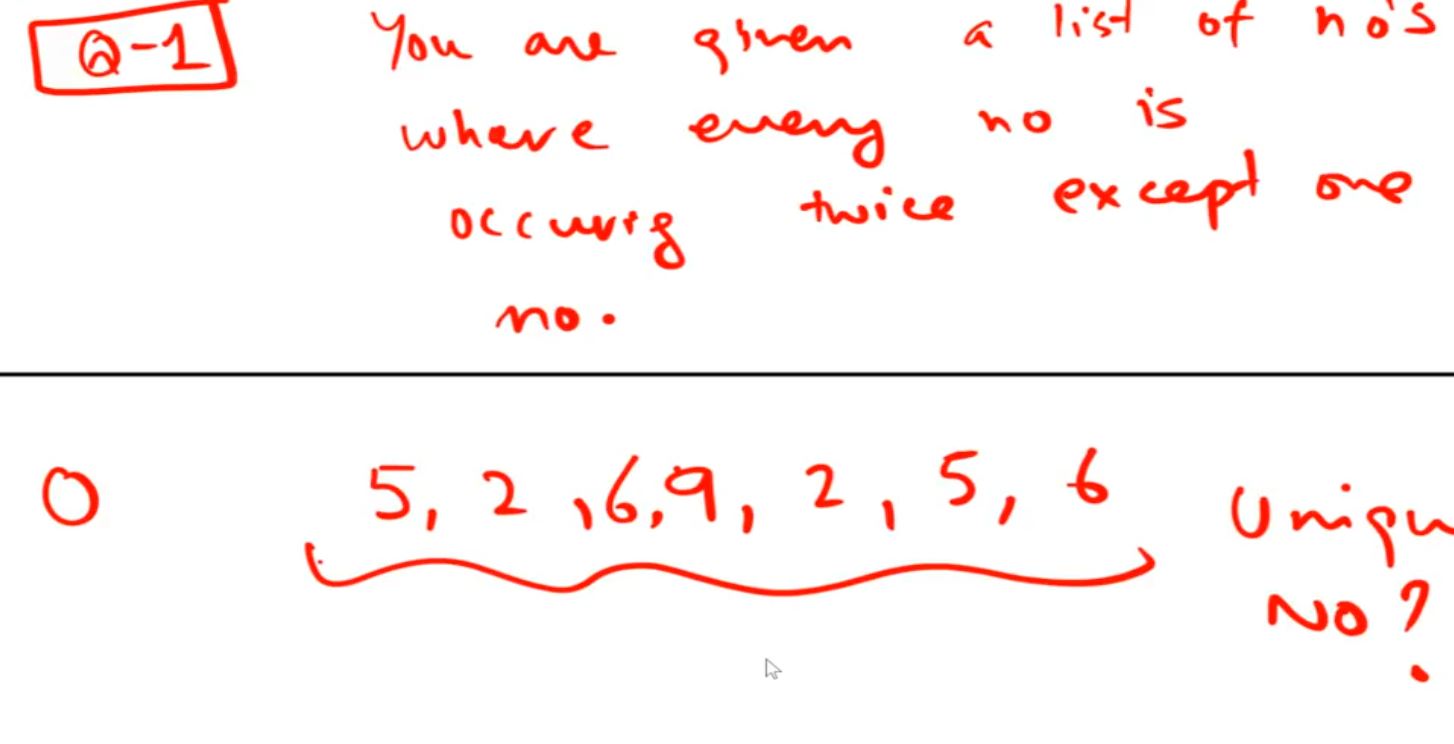 Q-1 You are given a list of no's
where every no is
occurig twice except one
no.
0 5, 2, 6, 9, 2, 5, 6 Uniqu
No?